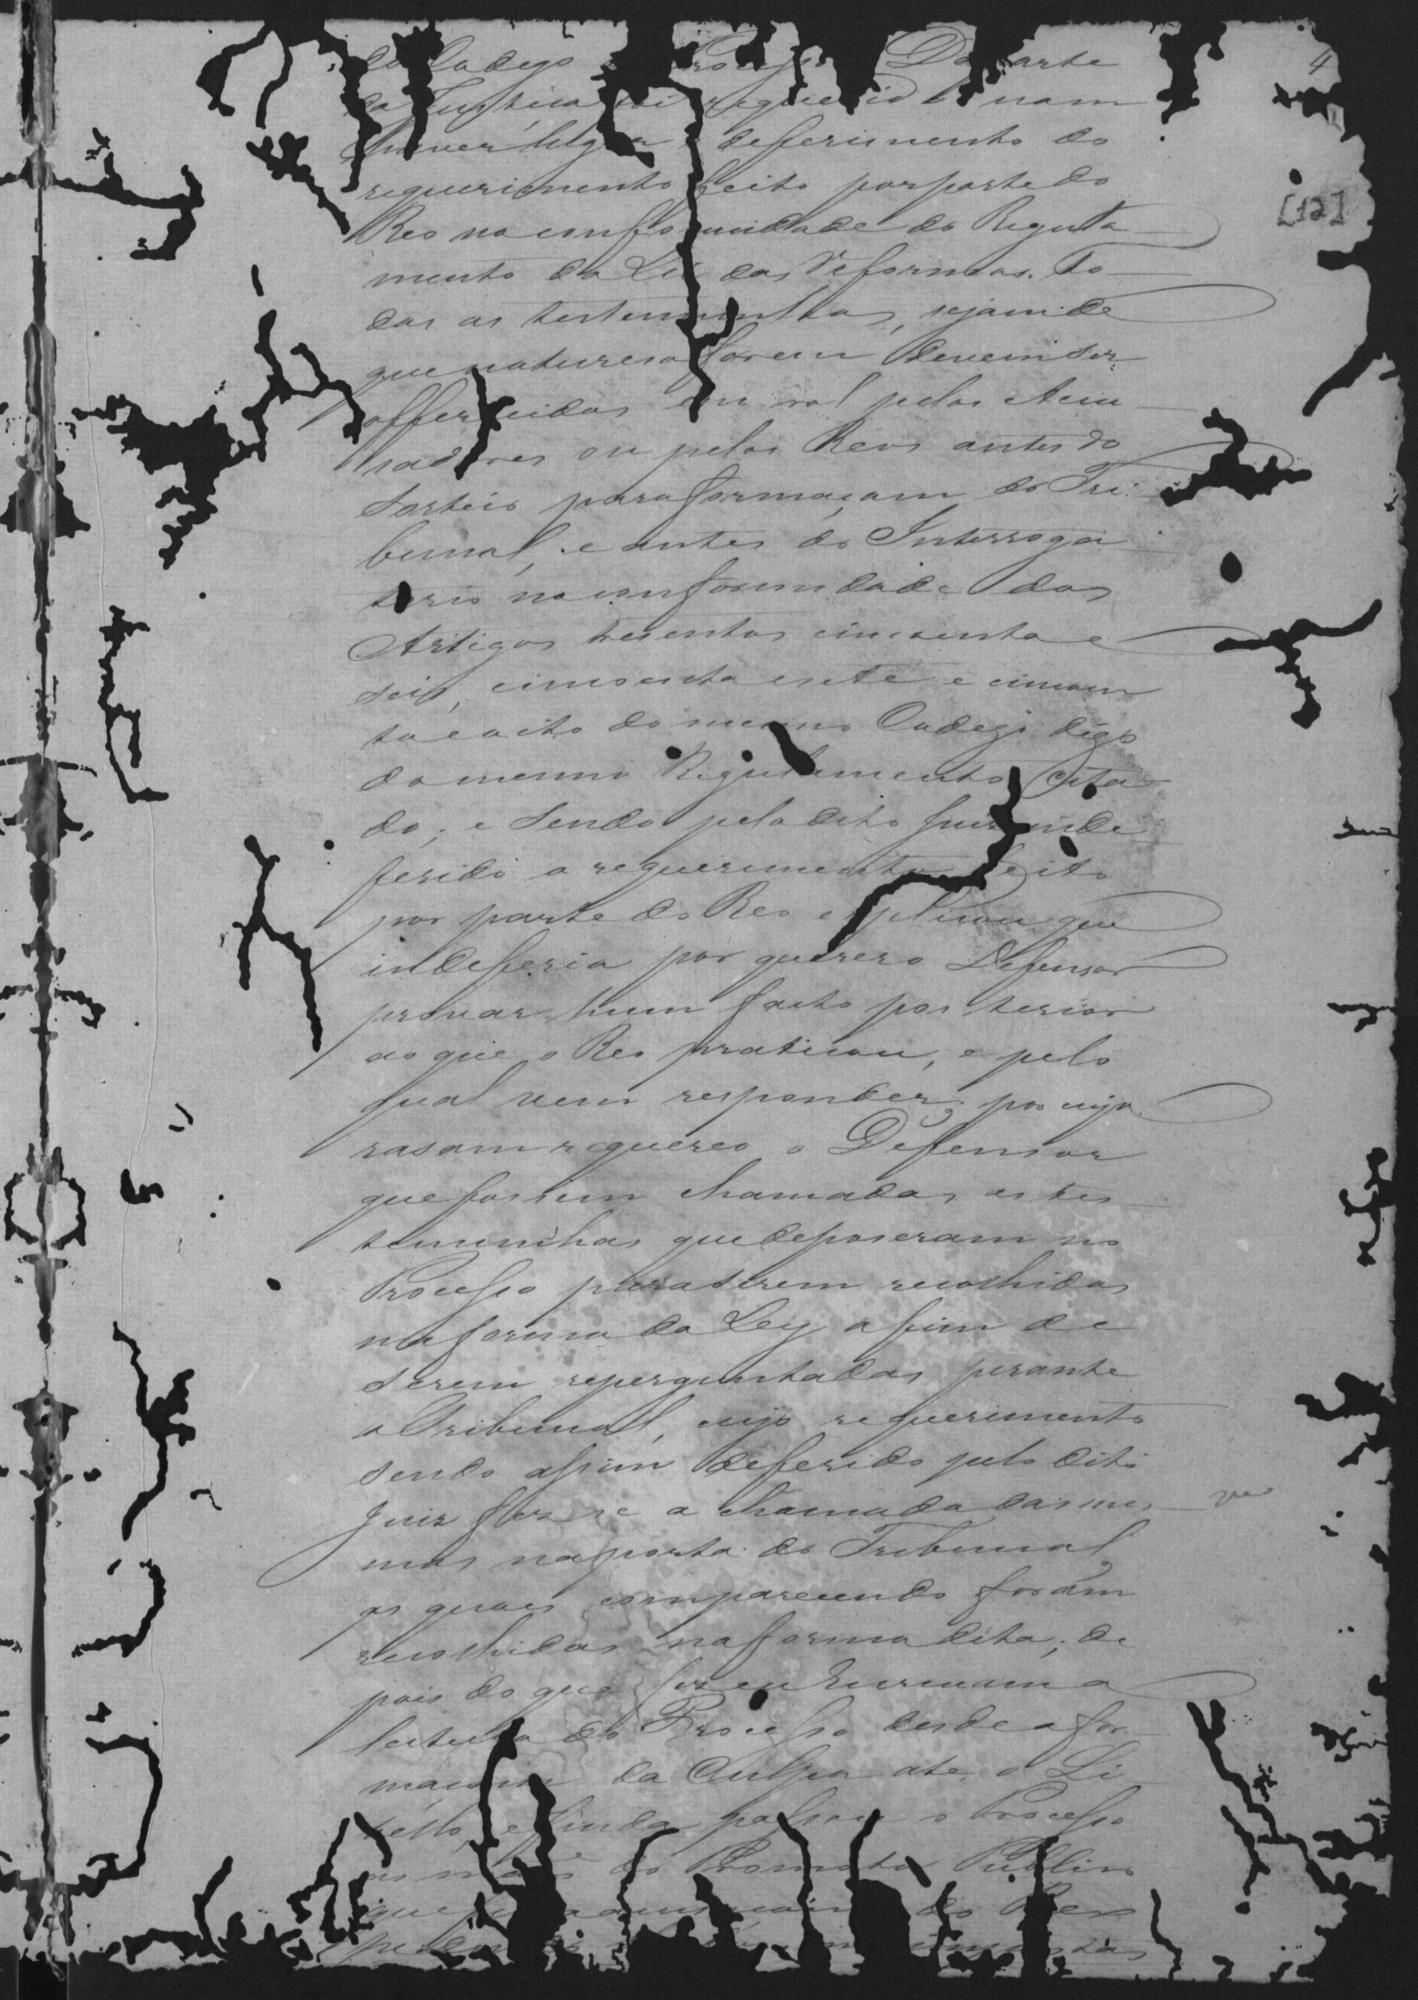 do Codego Processo Da parte 4
da Justiça foi requerido nam
haver lugar deferimento do
requerimento feito por parte do [12]
Reo na conformidade do Regula
mento da Lei das Reformas. To
das as testemunhas, sejam de
que naturesa forem devem ser
offerecidas em rol pelos Accu
sadores ou pelos Reos antes do
Sorteio para formaçam do Tri
bunal, e antes do Interroga
torio na conformidade dos
Artigos tresentos cincoenta e
seis, cincoenta e sete e cincoen
ta e oito do mesmo Codego digo
do mesmo Regulamento Cita
do; e sendo pelo dito Juiz inde
ferido o requerimento feito
por parte do Reo explicou que
indeferia por querer o Defensor
provar hum facto posterior
ao que o Reo praticou, e pelo
qual vem responder; por cuja
rasam requereo o Defensor
que fossem chamadas as tes
temunhas que deposeram no
Processo para serem recolhidas
na forma da Ley afim de
serem reperguntadas perante
o Tribunal, cujo requerimento
sendo assim deferido pelo dito
Juiz fez se a chamada das mes
mas na porta do Tribunal,
as quaes comparecendo foram
recolhidas na forma dita; de
pois do que fiz eu Escrivam a
leitura do Processo desde a for
maçam da Culpa ate o Li
bello, e finda passou o Processo
as mãos do Promotor Publico
que do Reo